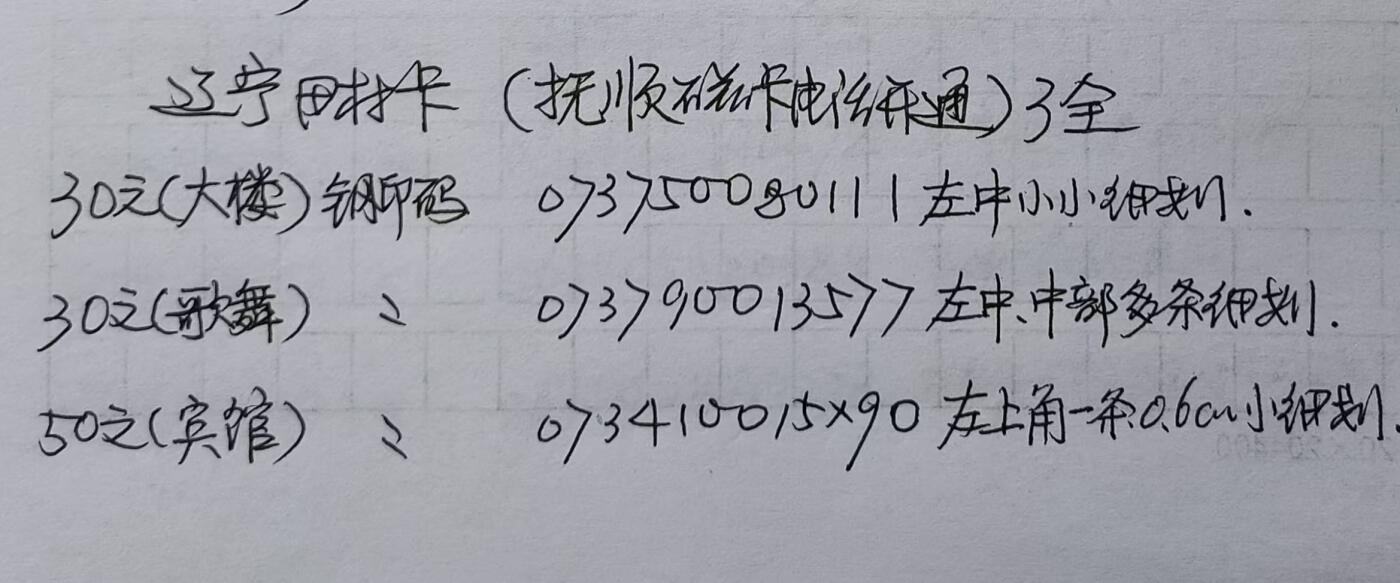 辽宁田村卡（抚顺磁卡电话开通）3全
30元(大楼)钢印码 073750080111左中小小细划.
30元(歌舞) 〃 073790013577左中、中部多条细划.
50元(宾馆) 〃 073410015×90左上角一条0.6cm小细划.